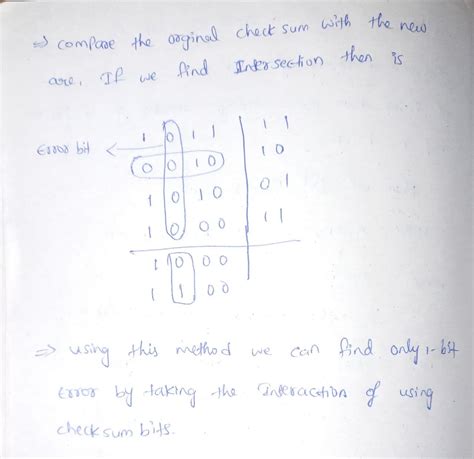 ⇒ compare the orginal check sum with the new
are. If we find Intersection then is
Error bit ← 1 0 1 1 | 1 1
0 0 1 0 | 1 0
1 0 1 0 | 0 1
1 0 0 0 | 1 1
1 0 0 0
1 1 0 0
⇒ using this method we can find only 1-bit
Error by taking the Interaction of using
checksum bits.